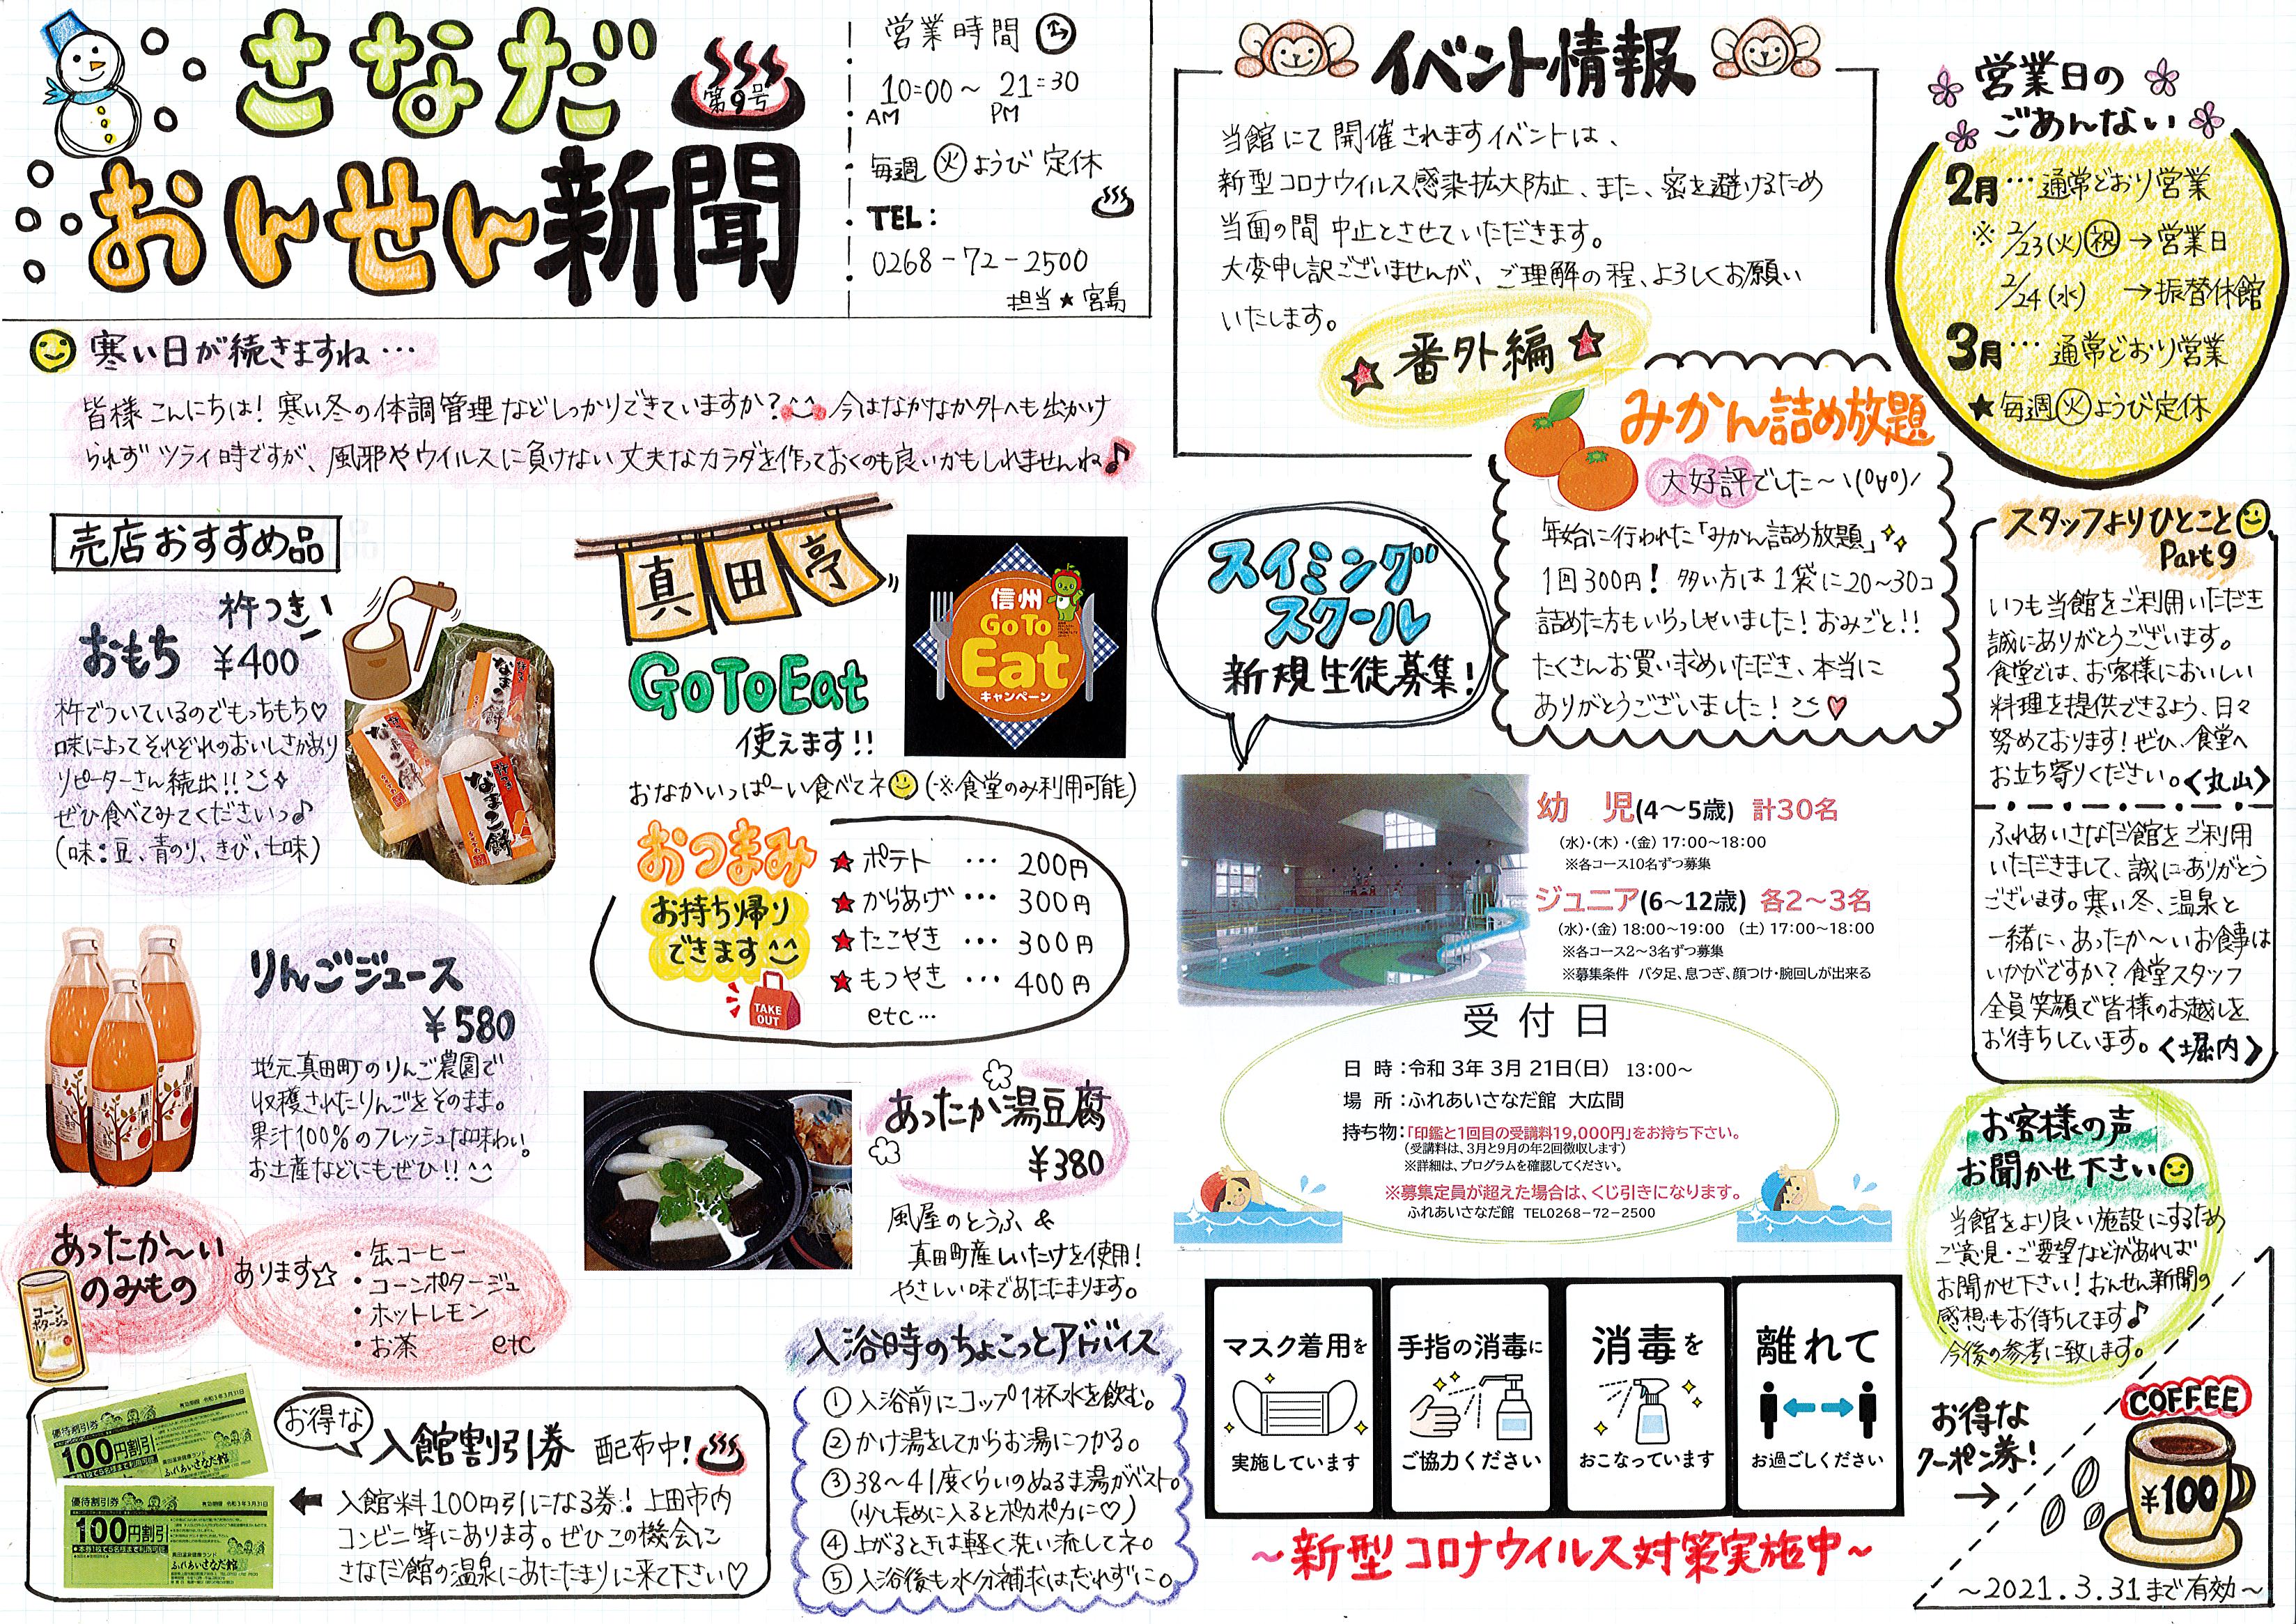 さなだ
おんせん新聞
第9号
営業時間
10:00～21:30
AM PM
毎週火ようび定休
TEL:
0268-72-2500
担当★宮島
寒い日が続きますね…
皆様こんにちは!寒い冬の体調管理などしっかりできていますか?今はなかなか外へも出かけ
られずツライ時ですが、風邪やウイルスに負けない丈夫なカラダを作っておくのも良いかもしれませんね♪
売店おすすめ品
杵つき!
おもち ¥400
杵でついているのでもっちもち♡
味によってそれぞれのおいしさがあり
リピーターさん続出!!
ぜひ食べてみてくださいっ♪
(味:豆、青のり、きび、七味)
なまこ餅
なまこ餅
なまこ餅
りんごジュース
¥580
地元真田町のりんご農園で
収穫されたりんごをそのまま。
果汁100%のフレッシュな味わい。
お土産などにもぜひ!!^^
あったか～い
のみもの
あります☆
・缶コーヒー
・コーンポタージュ
・ホットレモン
・お茶 etc
コーン
ポタージュ
真田亭
GoToEat
使えます!!
信州
GoTo
Eat
キャンペーン
おなかいっぱーい食べてネ(※食堂のみ利用可能)
おつまみ
お持ち帰り
できます^^
TAKE
OUT
★ポテト … 200円
★からあげ … 300円
★たこやき … 300円
★もつやき … 400円
etc…
あったか湯豆腐
¥380
風屋のとうふ&
真田町産しいたけを使用!
やさしい味であたたまります。
お得な
入館割引券 配布中!
← 入館料100円引になる券!上田市内
コンビニ等にあります。ぜひこの機会に
さなだ館の温泉にあたたまりに来て下さい♡
優待割引券 有効期限 令和3年3月31日
100円割引
優待割引券 有効期限 令和3年3月31日
100円割引
●本券1枚で5名様まで利用可能
真田温泉健康ランド
ふれあいさなだ館
入浴時のちょこっとアドバイス
①入浴前にコップ1杯水を飲む。
②かけ湯をしてからお湯につかる。
③38～41度くらいのぬるま湯がベスト。
(少し長めに入るとポカポカに♡)
④上がるときは軽く洗い流してネ。
⑤入浴後も水分補求は忘れずに。
イベント情報
当館にて開催されますイベントは、
新型コロナウイルス感染拡大防止、また、密を避けるため
当面の間中止とさせていただきます。
大変申し訳ございませんが、ご理解の程、よろしくお願い
いたします。
★番外編★
みかん詰め放題
大好評でした～ヽ(°∀°)ノ
年始に行われた「みかん詰め放題」
1回300円!多い方は1袋に20～30コ
詰めた方もいらっしゃいました!おみごと!!
たくさんお買い求めいただき、本当に
ありがとうございました!♡
営業日の
ごあんない
2月…通常どおり営業
※2/23(火)祝→営業日
2/24(水) →振替休館
3月…通常どおり営業
★毎週火ようび定休
スイミング
スクール
新規生徒募集!
幼 児(4～5歳) 計30名
(水)・(木)・(金)17:00～18:00
※各コース10名ずつ募集
ジュニア(6～12歳) 各2～3名
(水)・(金)18:00～19:00 (土)17:00～18:00
※各コース2～3名ずつ募集
※募集条件 バタ足、息つぎ、顔つけ・腕回しが出来る
受 付 日
日 時:令和 3年 3月 21日(日) 13:00～
場 所:ふれあいさなだ館 大広間
持ち物:「印鑑と1回目の受講料19,000円」をお持ち下さい。
(受講料は、3月と9月の年2回徴収します)
※詳細は、プログラムを確認してください。
※募集定員が超えた場合は、くじ引きになります。
ふれあいさなだ館 TEL0268-72-2500
スタッフよりひとこと
Part9
いつも当館をご利用いただき
誠にありがとうございます。
食堂では、お客様においしい
料理を提供できるよう、日々
努めております!ぜひ、食堂へ
お立ち寄りください。<丸山>
ふれあいさなだ館をご利用
いただきまして、誠にありがとう
ございます。寒い冬、温泉と
一緒に、あったか～いお食事は
いかがですか?食堂スタッフ
全員笑顔で皆様のお越しを
お待ちしています。<堀内>
お客様の声
お聞かせ下さい
当館をより良い施設にするため
ご意見・ご要望などがあれば
お聞かせ下さい!おんせん新聞の
感想もお待ちしてます♪
今後の参考に致します。
マスク着用を
実施しています
手指の消毒に
ご協力ください
消毒を
おこなっています
離れて
お過ごしください
～新型コロナウイルス対策実施中～
お得な
クーポン券!
→
COFFEE
¥100
～2021.3.31まで有効～